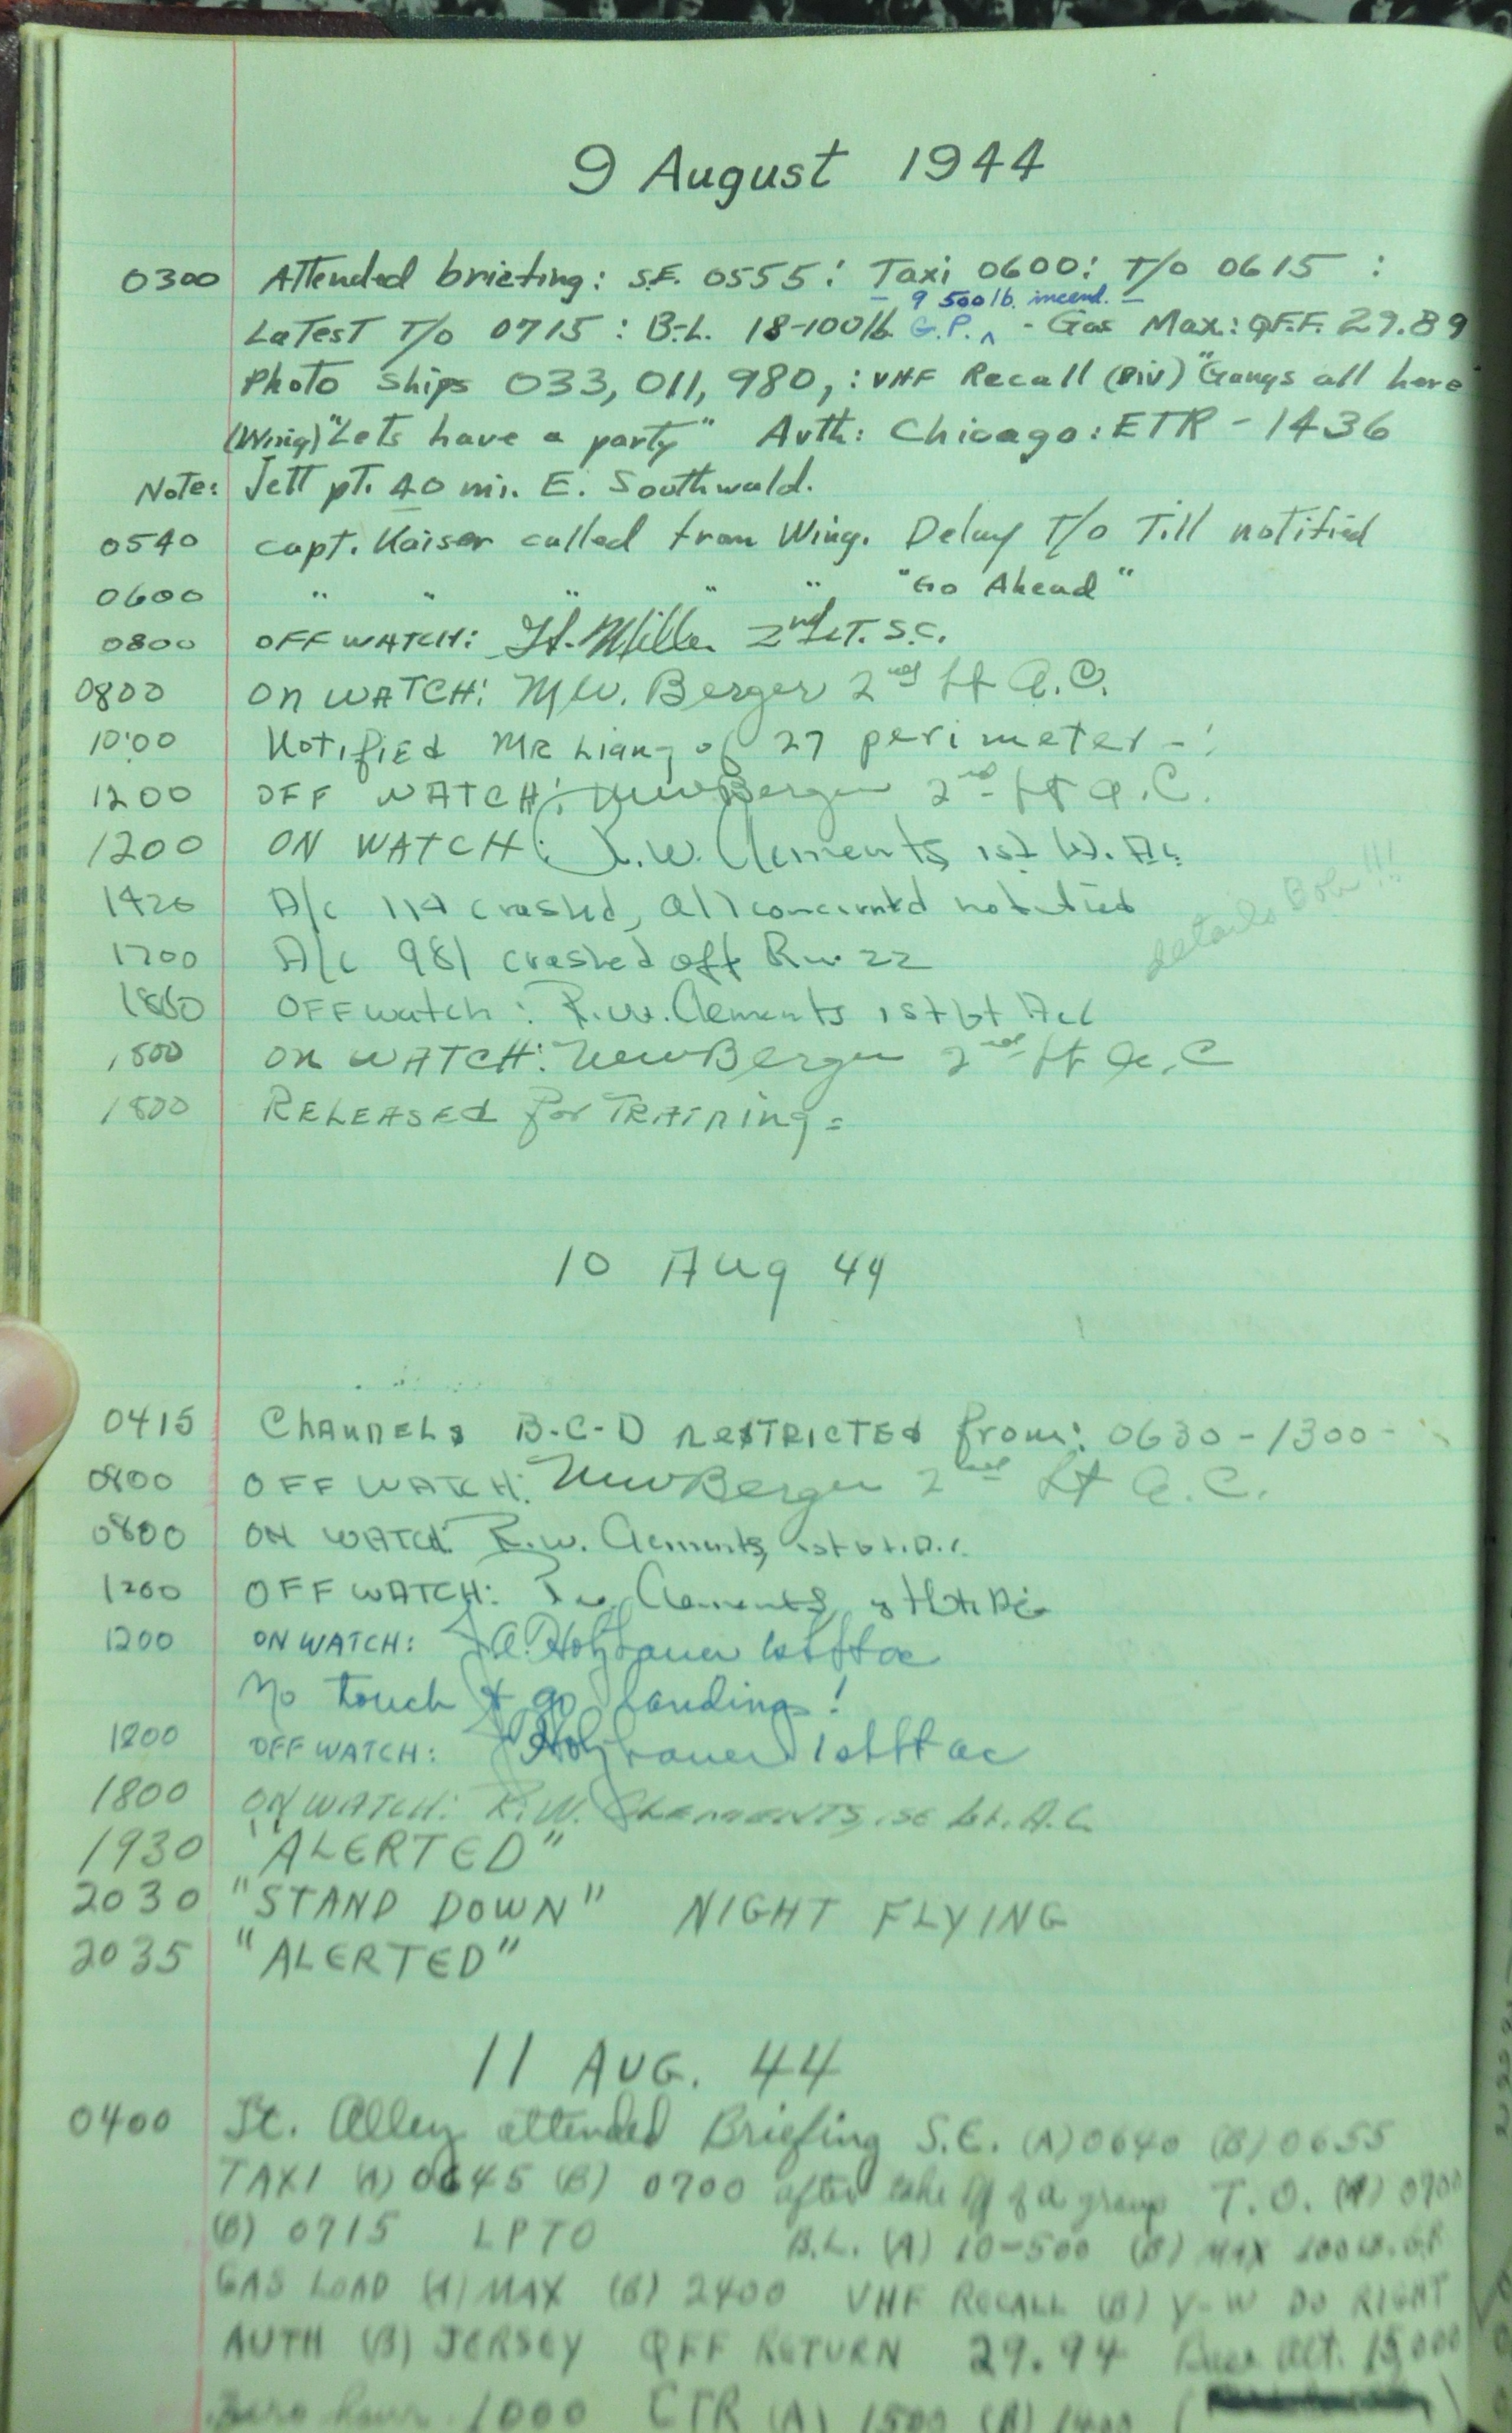 9 August 1944
0300 Attended briefing: S.E. 0555: Taxi 0600: T/O 0615 :
9 500 lb. incend.
Latest T/O 0715 : B-L. 18-100 lb. G.P. ^ - Gas Max: QFF. 29.89
Photo ships 033, 011, 980, : VHF Recall (Div) "Gangs all here
(Wing) "Lets have a party" Auth: Chicago: ETR - 1436
Note: Jett pt. 40 mi. E. Southwald.
0540 Capt. Kaiser called from Wing. Delay T/O Till notified
0600 " " " " " "Go Ahead"
0800 OFF WATCH: Miller 2nd LT. S.C.
0800 ON WATCH: MW. Berger 2nd Lt A.C.
10:00 Notified MR of 27 perimeter - :
1200 OFF WATCH: MW Berger 2nd Lt A.C.
1200 ON WATCH: R.W. Clements 1st Lt. AC.
1420 A/c 114 crashed, all concerned notified
details Bob!!!
1700 A/c 981 crashed off Rw 22
1800 OFF watch: R.W. Clements 1st Lt AC
1800 ON WATCH: MW Berger 2nd Lt A.C
1800 RELEASED for TRAINING =
10 Aug 44
0415 Channels B-C-D RESTRICTED from: 0630 - 1300 -
0800 OFF WATCH: MW Berger 2nd Lt A.C.
0800 ON WATCH R.W. Clements, 1st Lt. A.C.
1200 OFF WATCH: R.W. Clements, 1st Lt. AC
1200 ON WATCH: 1st Lt ac
No touch & go landings!
1800 OFF WATCH: 1st Lt ac
1800 ON WATCH: R.W. CLEMENTS, 1st Lt. A.C.
1930 "ALERTED"
2030 "STAND DOWN" NIGHT FLYING
2035 "ALERTED"
11 AUG. 44
0400 Lt. Alley attended Briefing S.E. (A) 0640 (B) 0655
TAXI (A) 0645 (B) 0700 after take off of a group T.O. (A) 0700
(B) 0715 LPTO B.L. (A) 10-500 (B) MAX 100 lb. GP
GAS LOAD (A) MAX (B) 2400 VHF RECALL (B) DO RIGHT
AUTH (B) JERSEY QFF RETURN 29.94 Alt. 15,000
Zero hour 1000 ETR (A) 1500 (B) 1400 (